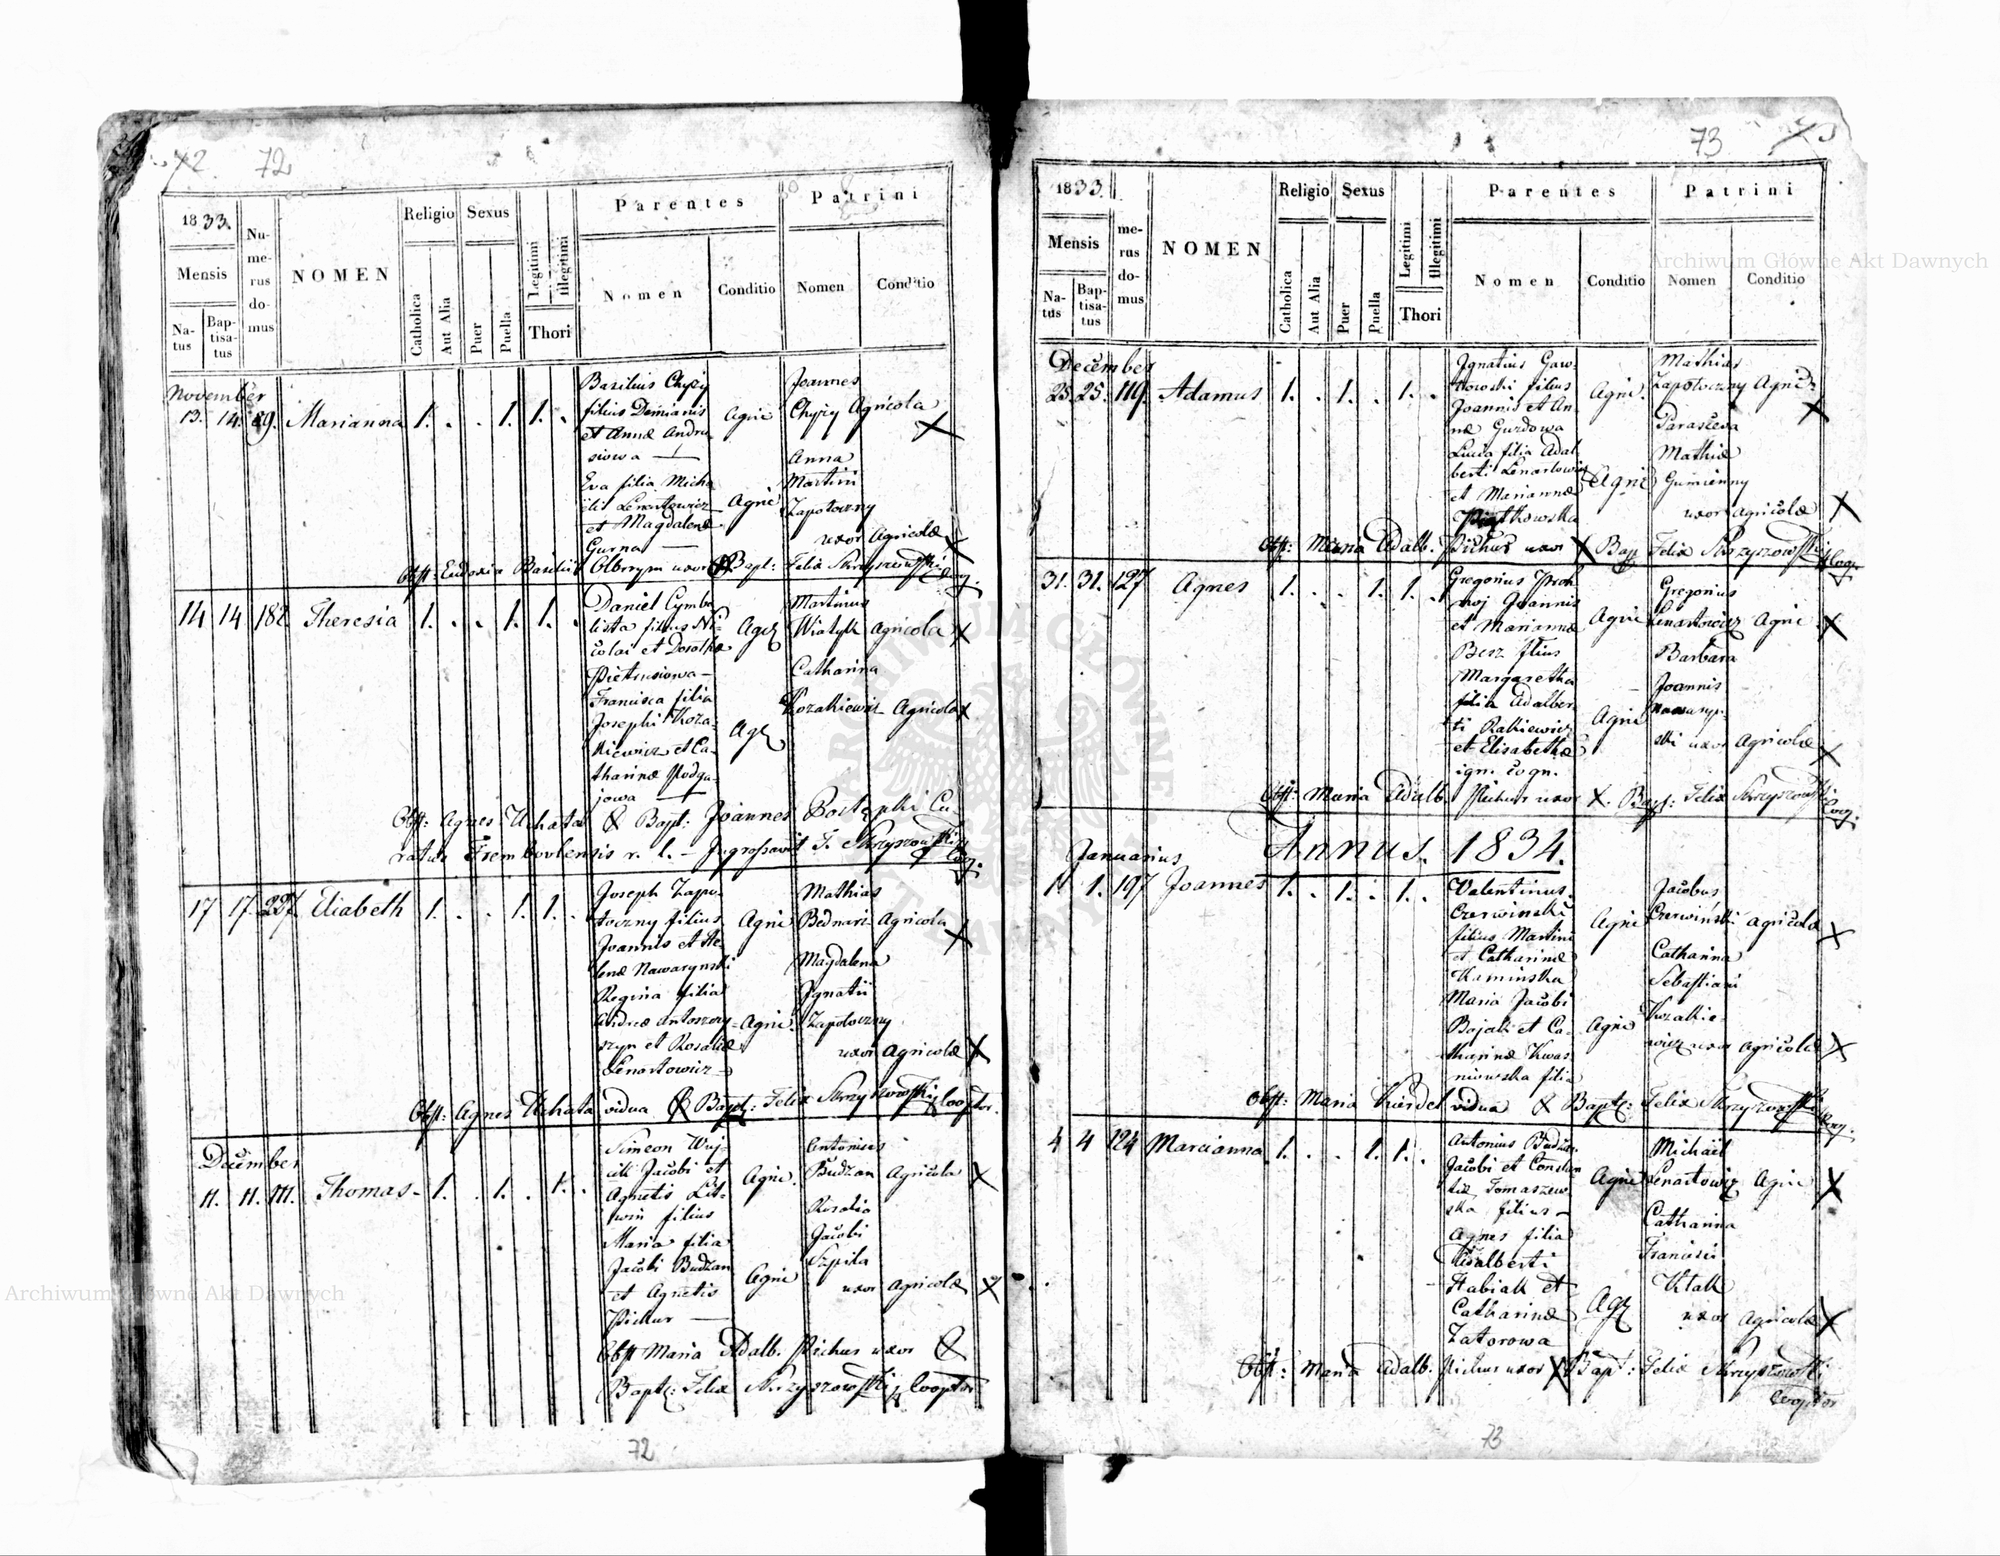 72. 72
1833.
Mensis
Natus
Baptisatus
Numerus domus
NOMEN
Religio
Catholica
Aut Alia
Sexus
Puer
Puella
Legitimi
Illegitimi
Thori
Parentes
Nomen
Conditio
Patrini
Nomen
Conditio
November
13. 14. 89. Marianna 1. . . 1. 1. .
Basilius Chyży
filius Demianis
et Annæ Andru
siowa —
Agric
Eva filia Micha
ëlis Lenartowicz
et Magdalenæ
Gurna —
Agric
Joannes
Chyży Agricola X
Anna
Martini
Zapotoczny
uxor Agricolæ X
Obst: Eudoxia Basilii uxor X Bapt: Felix Skrzyszowski Coop.
14 14 182 Theresia 1. . . 1. 1. .
Daniel Cymba
lista filius Ni
colai et Dorothæ
Pietrusiowa —
Agr
Francisca filia
Josephi Koza
kiewicz et Ca
tharinæ Podga
jowa —
Agr
Martinus
Wiatyk Agricola X
Catharina
Kozakiewicz Agricola X
Obst: Agnes Uchata X Bapt: Joannes Bostępski Cu
ratus Trembovlensis r. l. — Ingrossavit F. Skrzyszowski Coop.
17 17 227. Eliabeth 1. . . 1. 1. .
Joseph Zapo
toczny filius
Joannis et He
lenæ Nawarynski
Agric
Regina filia
Andreæ Antoszczy
szyn et Rosaliæ
Lenartowicz —
Agric.
Mathias
Bednarz Agricola X
Magdalena
Ignatii
Zapotoczny
uxor Agricolæ X
Obst: Agnes Uchata vidua X Bapt: Felix Skrzyszowski Cooptor.
December
11. 11. 111. Thomas 1. . 1. . 1. .
Simeon Wuj
cik Jacobi et
Agnetis Lit
win filius
Agric.
Maria filia
Jacobi Budzan
et Agnetis
Pichur —
Agric
Antonius
Budzan Agricola X
Rosalia
Jacobi
Szpila
uxor Agricolæ X
Obst Maria Adalb. Pichur uxor X
Bapt: Felix Skrzyszowski Cooptor
72
73
1833.
Mensis
Natus
Baptisatus
merus domus
NOMEN
Religio
Catholica
Aut Alia
Sexus
Puer
Puella
Legitimi
Illegitimi
Thori
Parentes
Nomen
Conditio
Patrini
Nomen
Conditio
December
25. 25. 119. Adamus 1. . 1. . 1. .
Ignatius Gaw
rowski filius
Joannis et An
næ Gurdowa
Agric.
Lucia filia Adal
berti Lenartowicz
et Mariannæ
Piątkowska
Agric
Mathias
Zapotoczny Agric X
Parasceva
Mathiæ
Gumienny
uxor Agricolæ X
Obst: Maria Adalb. Pichur uxor X Bap Felix Skrzyszowski Coop.
31. 31. 127 Agnes 1. . . 1. 1. .
Gregorius
Joannis
et Mariannæ
Berz filius
Agric
Margaretha
filia Adalber
ti Rakiewicz
et Elisabethæ
ign. cogn.
Agric
Gregorius
Lenartowicz Agric X
Barbara
Joannis
Nawaryn
ski uxor Agricolæ X
Obst: Maria Adalb. Pichur uxor X. Bapt: Felix Skrzyszowski Coop.
Annus. 1834.
Januarius
1. 1. 197 Joannes 1. . 1. . 1. .
Valentinus
Czerwinski
filius Martini
et Catharinæ
Kaminska
Agric
Maria Jacobi
Bajak et Ca
tharinæ Kwas
niowska filia
Agric
Jacobus
Czerwiński Agricola X
Catharina
Sebastiani
Kozakie
wicz uxor Agricolæ X
Obst: Maria Kurdel vidua X Bapt: Felix Skrzyszowski Coop.
4 4 124 Marcianna 1. . . 1. 1. .
Antonius Budzan
Jacobi et Constan
tiæ Tomaszew
ska filius —
Agric
Agnes filia
Adalberti
Habiak et
Catharinæ
Zatorowa
Agr
Michaël
Lenartowicz Agric X
Catharina
Francisci
Ktak
uxor Agricolæ X
Obst: Maria Adalb. Pichur uxor X Bapt: Felix Skrzyszowski
Cooptor
73
Archiwum Główne Akt Dawnych
Archiwum Główne Akt Dawnych
ARCHIWUM GŁÓWNE AKT DAWNYCH